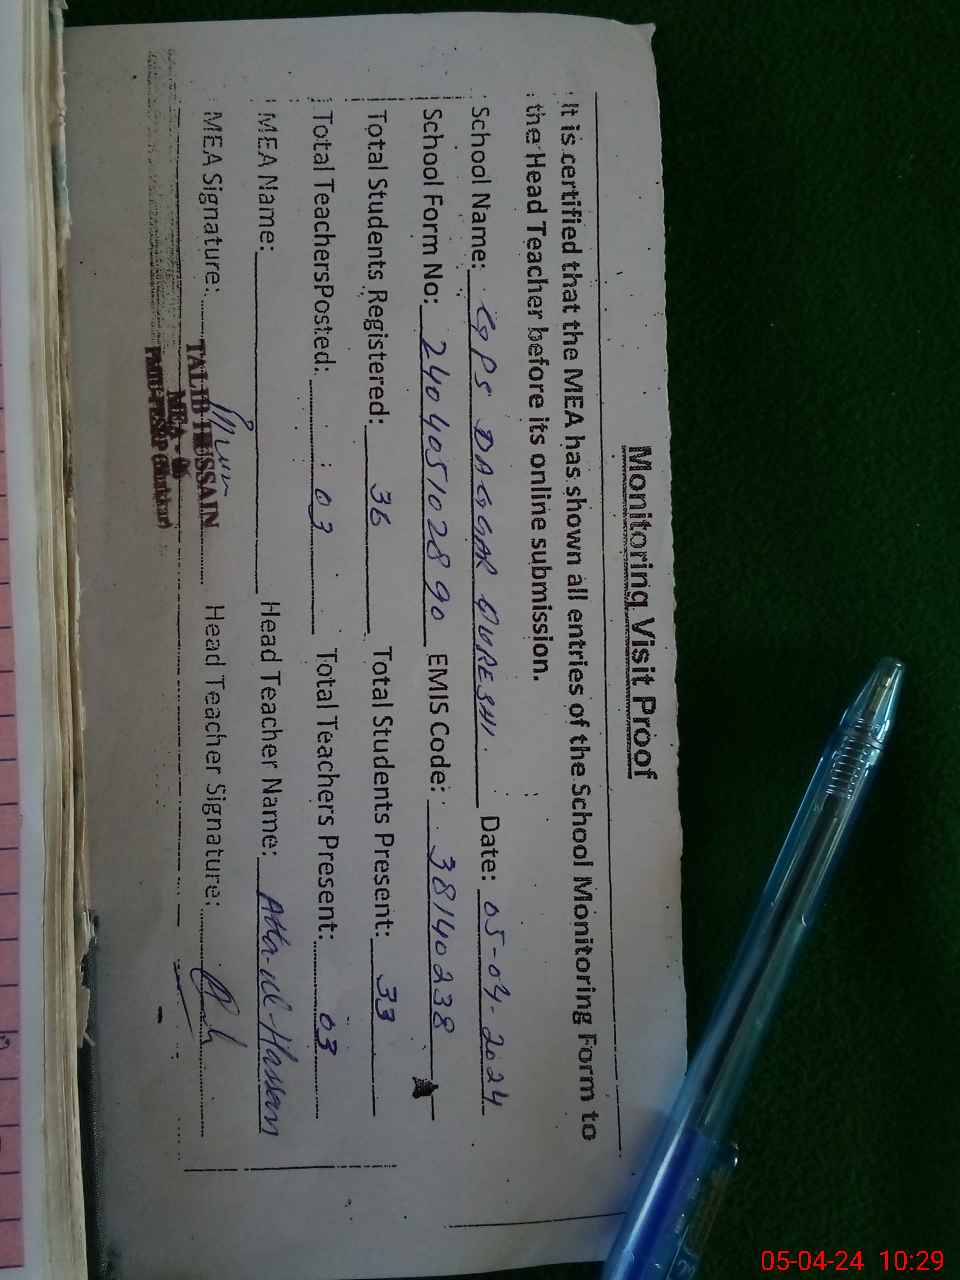 Monitoring Visit Proof
It is certified that the MEA has shown all entries of the School Monitoring Form to
the Head Teacher before its online submission.
School Name: GPS DAGGAR QURESHI. Date: 05-04-2024
School Form No: 240405102890 EMIS Code: 38140238
Total Students Registered: 36 Total Students Present: 33
Total TeachersPosted: 03 Total Teachers Present: 03
MEA Name: Head Teacher Name: Atta-ul-Hassan
MEA Signature: Head Teacher Signature:
TALIB HUSSAIN
05-04-24 10:29